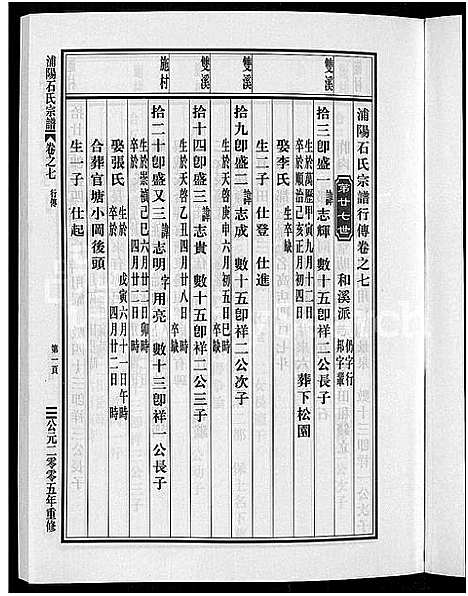 浦陽石氏宗譜行傳卷之七
第廿七世 和溪派 仍字行 邦字叢
雙溪
拾三卽盛一 諱志輝 數十五卽祥二公長子
生於萬歷甲寅九月十二日
卒於順治己亥正月初四日 葬下松園
娶李氏 生卒缺
生二子 仕登 仕進
雙溪
拾九卽盛二 諱志成 數十五卽祥二公次子
生於天啓庚申六月初五日巳時
卒缺
雙溪
拾十四卽盛三 諱志貴 數十五卽祥二公三子
生於天啓乙丑四月廿八日
卒缺
施村
拾二十卽盛又三 諱志明 字用亮 數十三卽祥一公長子
生於崇禎己巳六月廿二日卯時
卒於 四月廿二日時
娶張氏 生於 戊寅六月十一日午時
卒於 四月廿二日時
合葬官塘小岡後頭
生一子 仕起
浦陽石氏宗譜 卷之七 行傳
第一頁
公元二零零五年重修